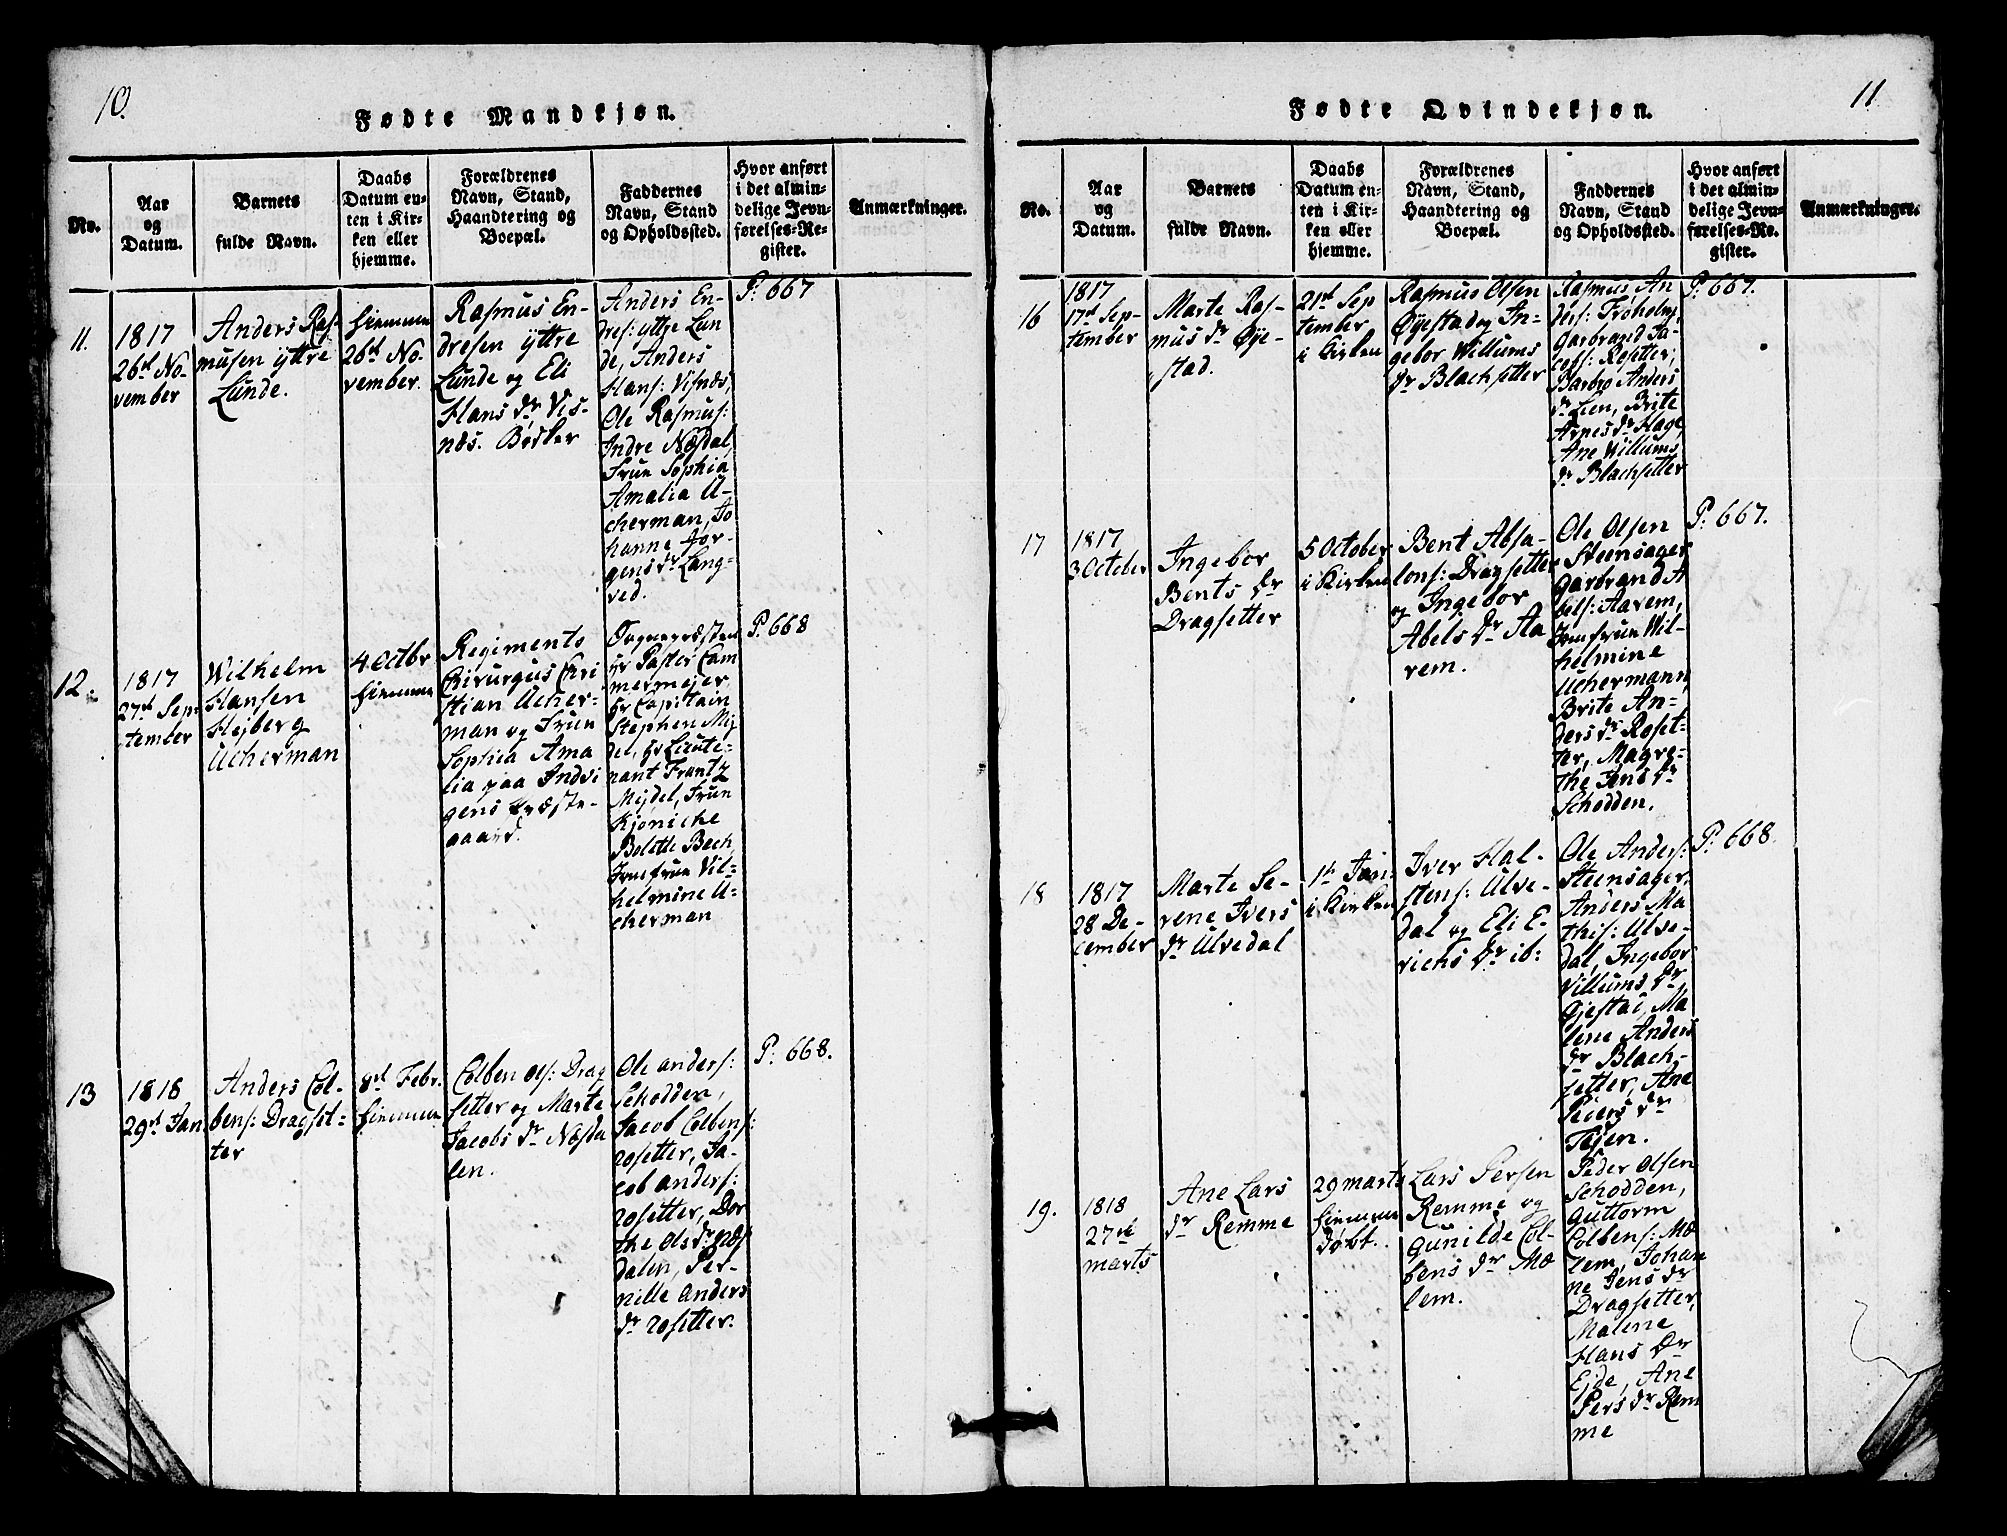 10.
Fødte Mandkjøn.
No.
Aar
og
Datum.
Barnets
fulde Navn.
Daabs
Datum en-
ten i Kir-
ken eller
hjemme.
Forældrenes
Navn, Stand,
Haandtering og
Boepæl.
Faddernes
Navn, Stand
og Opholdssted.
Hvor anført
i det almin-
delige Jevn-
førelses-Re-
gister.
Anmærkninger.
11.
1817
26de No-
vember
Anders Ras-
musen yttre
Lunde.
hiemme
26de No-
vember.
Rasmus En-
dresen yttre
Lunde og Eli
Hans dr Vis-
næs. Bødker
Anders En-
dres: yttre Lun
de, Anders
Hans: Visnæs,
Ole Rasmus:
Indre Næsdal,
Frue Sophia
Amalia U-
cherman, Jo
hanne Jør-
gens dr Lang-
ved.
P: 667
12.
1817
27de Sep-
tember
Wilhelm
Hansen
Hejberg
Ucherman
4 Octbr
hiemme
Regiments
Chirurgus Chri
stian Ucher-
man og Frue
Sophia Ama
lia paa Indvi
gens Præste-
gaard.
Sognepræsten
Hr Pastor Cam
mermejer,
Hr Capitain
Stephen Mij
del, Hr Lieute-
nant Frantz
Mijdel, Frue
Kjønicke
Bolette Bech,
Jomfrue Vil-
helmine U-
cherman
P. 668
13
1818
29de Jan.
Anders Col-
bens: Dragset-
ter
8de Febr.
hiemme
Colben Ols: Drag
setter og Marte
Jacobs dr Næsda
len.
Ole anders:
Schodden,
Jacob Colbens:
rosetter, Ja-
cob anders:
rosetter, Dor
the Ols dr Næs
dalen, Per-
nille anders
dr rosetter.
P: 668.
11
Fødte Qvindekjøn.
No.
Aar
og
Datum.
Barnets
fulde Navn.
Daabs
Datum en-
ten i Kir-
ken eller
hjemme.
Forældrenes
Navn, Stand,
Haandtering og
Boepæl.
Faddernes
Navn, Stand
og Opholdssted.
Hvor anført
i det almin-
delige Jevn-
førelses-Re-
gister.
Anmærkninger.
16
1817
17de Sep-
tember
Marte Ras-
mus dr Øye-
stad.
21de Sep
tember
i Kirken
Rasmus Olsen
Øyestad og In-
gebor Willums
dr Blachsetter
Rasmus An
ders: Froholm,
Garbrand Ja-
cobs: Rosetter,
Barbro Anders
dr Lien, Brite
Arnes dr Hage,
Ane Willums
dr Blachsetter
P: 667.
17
1817
3 October
Ingebor
Bents dr
Dragsetter
5 October
i Kirken
Bent Absa-
lons: Dragsetter
og Ingebor
Abels dr Aa
rem.
Ole Olsen
Steensager
Garbrand A
bels: Aarem,
Jomfrue Wil-
helmine
Uchermann,
Brite An-
ders dr Roset-
ter, Magre-
the Jens dr
Schodden.
P: 667.
18
1817
28 De-
cember
Marte Se-
rene Ivers
dr Ulvedal
1te Jan:
i Kirken
Iver Hal-
stens: Ulve-
dal og Eli E-
richs dr ib:
Ole Anders:
Steensager,
Anders Ma
this: Ulve-
dal, Ingebor
Villums dr
Gjestad, Ma
lene Anders
dr Blach-
setter, Ane
Peiers dr
Tajen.
P: 668.
19.
1818
27de
marts
Ane Lars
dr Remme
29 marts
hiemme
døbt.
Lars Persen
Remme og
Gunilde Col-
bens dr Mæ
lem.
Peder Olsen
Schodden,
Guttorm
Colbens: Mæ
lem, Johan
ne Jens dr
Dragsetter,
Malene
Hans dr
Ejde, Ane
Pers dr Rem
me